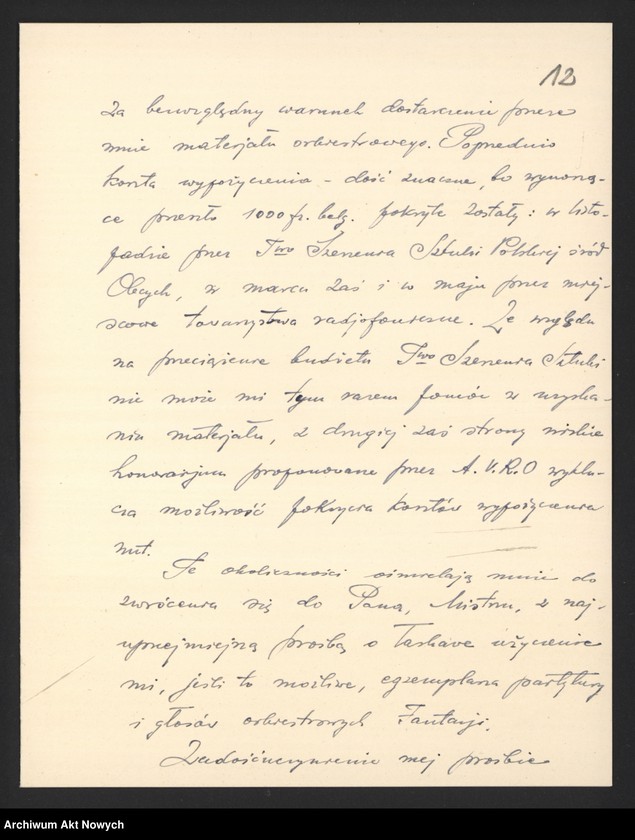 12
za bezwzględny warunek dostarczenie przeze
mnie materjału orkiestrowego. Poprzednio
koszta wypożyczenia – dość znaczne, bo wynoszą-
ce przeszło 1000 fr. belg. pokryte zostały: w listo-
padzie przez Two Szerzenia Sztuki Polskiej śród
Obcych, w marcu zaś i w maju przez miej-
scowe towarzystwa radjofoniczne. Ze względu
na przeciążenie budżetu Two Szerzenia Sztuki
nie może mi tym razem pomóc w uzyska-
niu materjału, z drugiej zaś strony niskie
honorarjum proponowane przez A.V.R.O wyklu-
cza możliwość pokrycia kosztów wypożyczenia
nut.
Te okoliczności ośmielają mnie do
zwrócenia się do Pana, Mistrzu, z naj-
uprzejmiejszą prośbą o łaskawe użyczenie
mi, jeśli to możliwe, egzemplarza partytury
i głosów orkiestrowych Fantazji.
Zadośćuczynienie mej prośbie
Archiwum Akt Nowych